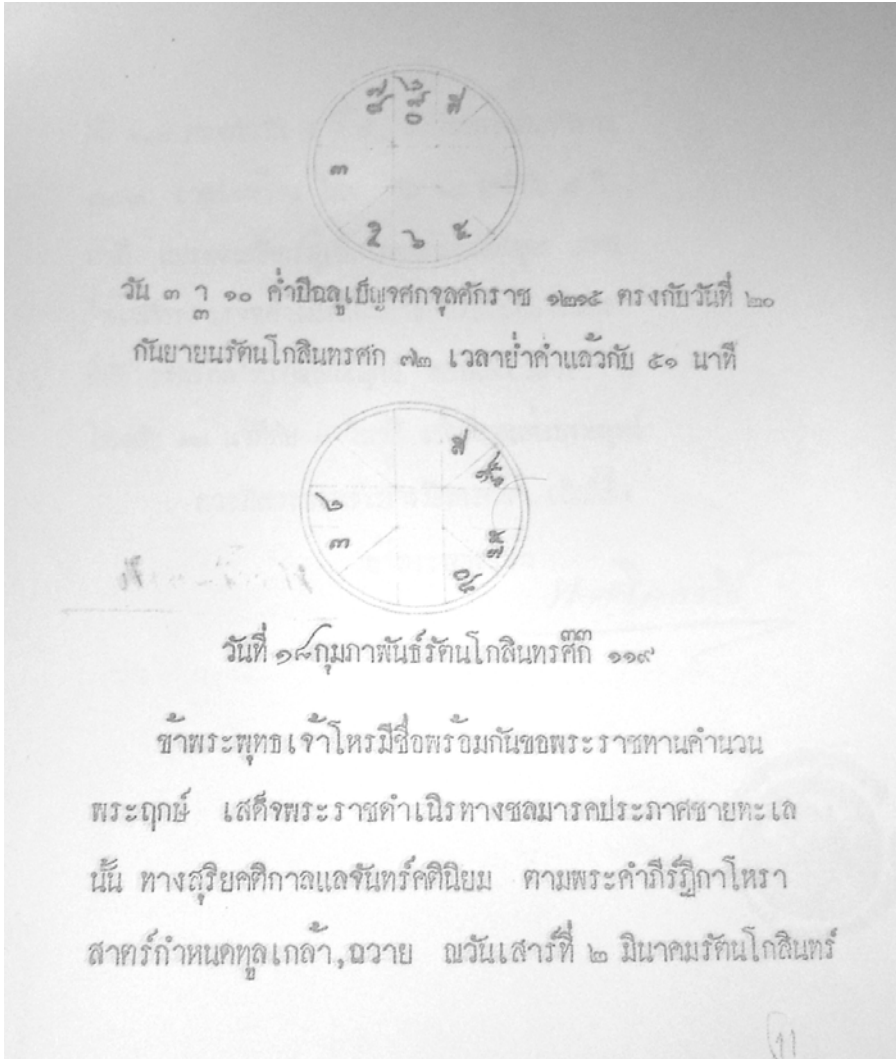 วัน ๓ ฯ ๑๐ ค่ำปีฉลูเบ็ญจศกจุลศักราช ๑๒๑๕ ตรงกับวันที่ ๒๐
๓
กันยายนรัตนโกสินทรศก ๗๒ เวลาย่ำค่ำแล้วกับ ๕๑ นาที
วันที่ ๑๘ กุมภาพันธ์รัตนโกสินทรศ๊ก ๑๑๙
ข้าพระพุทธเจ้าโหรมีชื่อพร้อมกันขอพระราชทานคำนวน
พระฤกษ์ เสด็จพระราชดำเนิรทางชลมารคประภาศชายทะเล
นั้น ทางสุริยคติกาลแลจันทร์คตินิยม ตามพระคำภีร์ฎีกาโหรา
สาตร์กำหนดทูลเกล้า,ถวาย ณวันเสาร์ที่ ๒ มีนาคมรัตนโกสินทร์